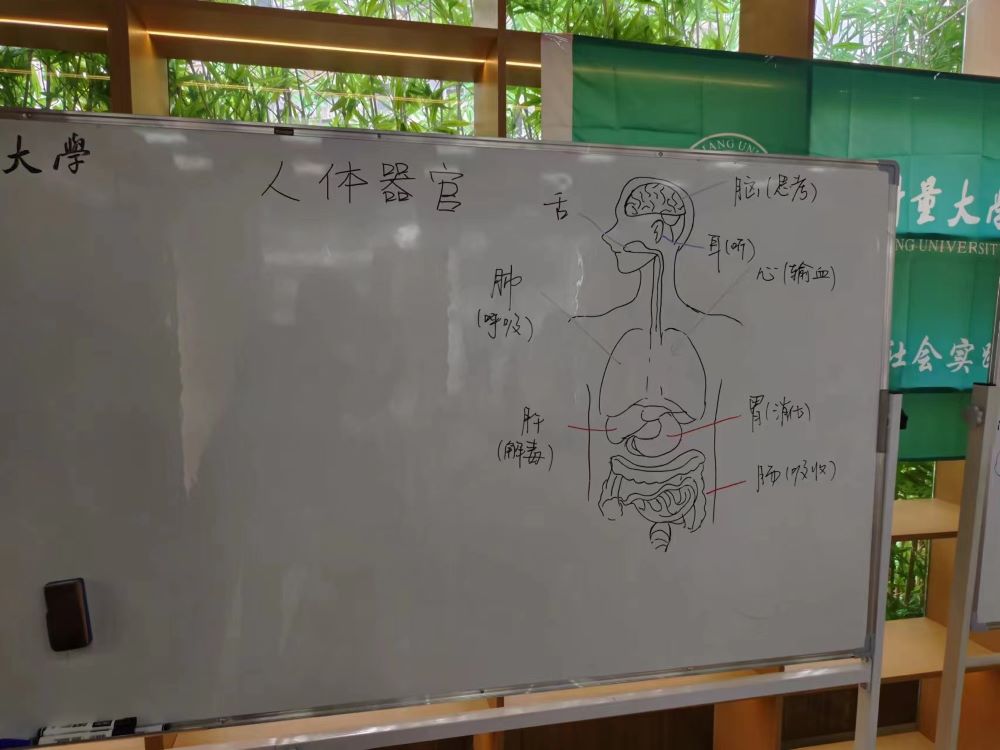 大學
人体器官
舌
脑(思考)
耳(听)
心(输血)
肺
(呼吸)
肝
(解毒)
胃(消化)
肠(吸收)
量大学
NG UNIVERSITY
社会实践